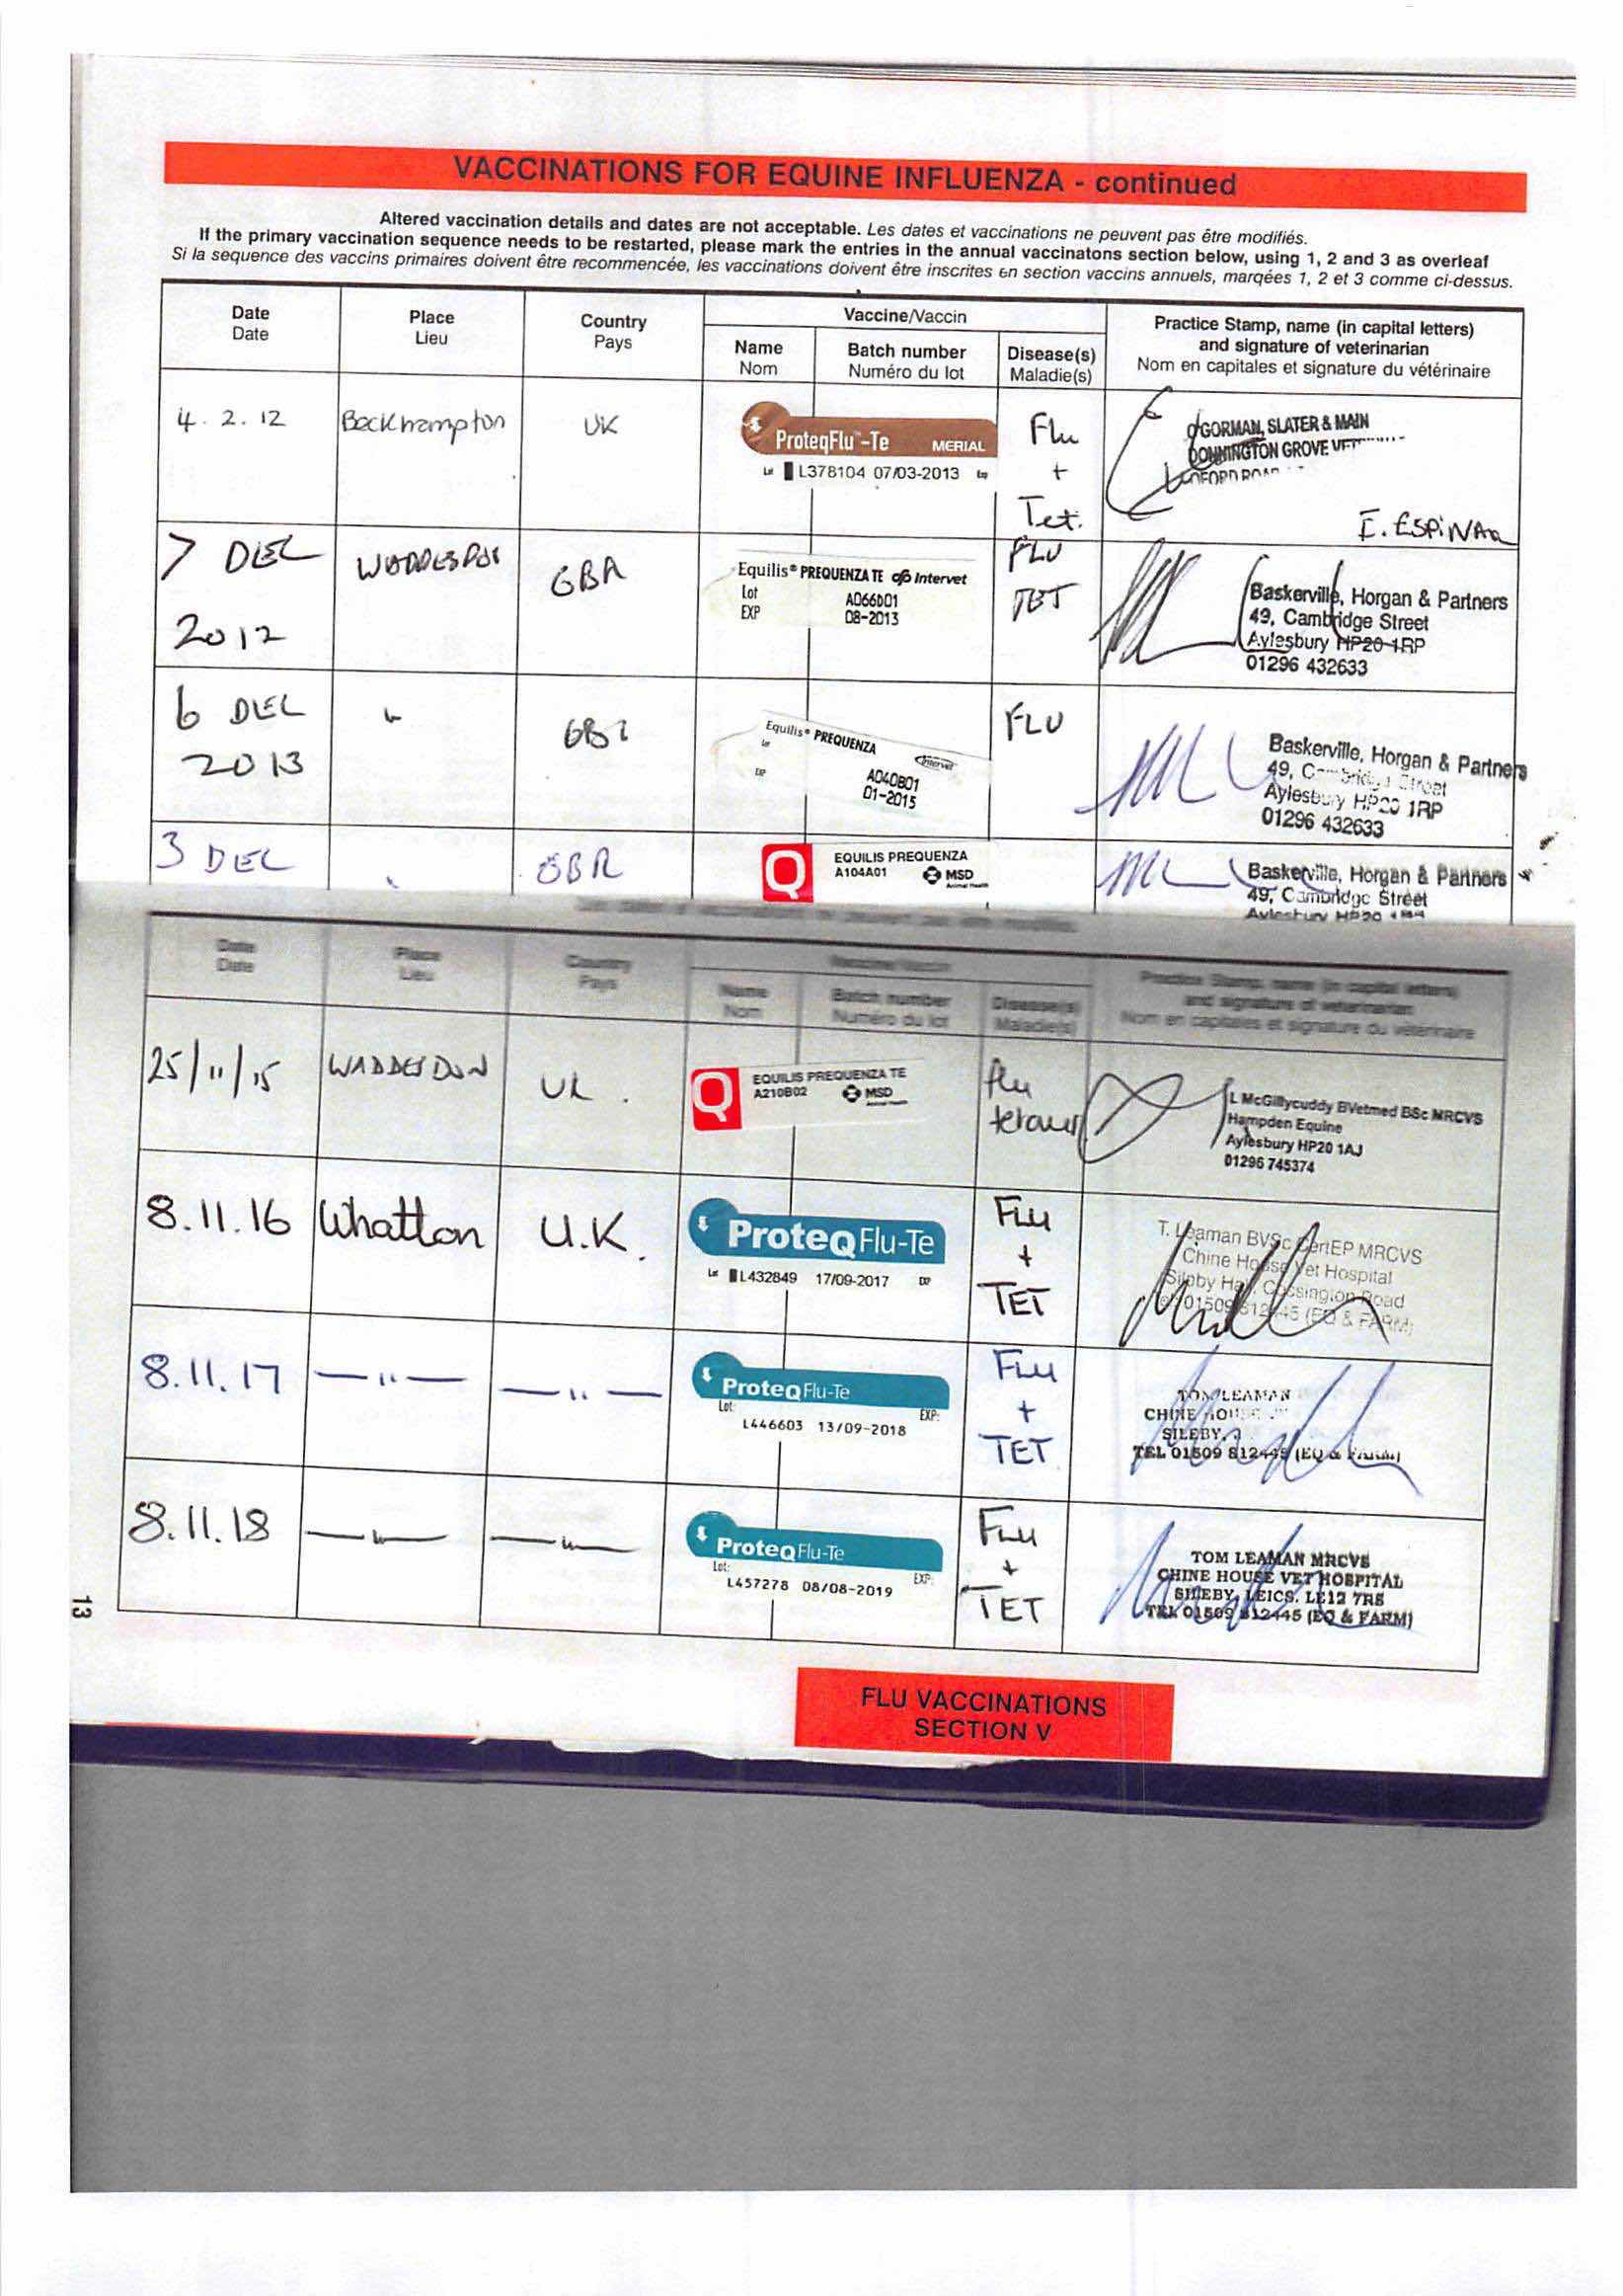 VACCINATIONS FOR EQUINE INFLUENZA - continued
Altered vaccination details and dates are not acceptable. Les dates et vaccinations ne peuvent pas être modifiés.
If the primary vaccination sequence needs to be restarted, please mark the entries in the annual vaccinatons section below, using 1, 2 and 3 as overleaf
Si la sequence des vaccins primaires doivent être recommencée, les vaccinations doivent être inscrites en section vaccins annuels, marqées 1, 2 et 3 comme ci-dessus.
Date Place Country Vaccine/Vaccin Practice Stamp, name (in capital letters)
Date Lieu Pays and signature of veterinarian
Name Batch number Disease(s) Nom en capitales et signature du vétérinaire
Nom Numéro du lot Maladie(s)
4.2.12 Beckhampton UK ProteqFlu™-Te MERIAL Flu
Lot L378104 07/03-2013 Exp +
Tet.
O'GORMAN, SLATER & MAIN
DONNINGTON GROVE
OXFORD ROAD
E. ESPINAR
7 DEC 2012 WADDESDON GBR
Equilis® PREQUENZA TE Intervet
Lot A066D01
EXP 08-2013
FLU
TET
Baskerville, Horgan & Partners
49, Cambridge Street
Aylesbury HP20 1RP
01296 432633
6 DEC
2013
"
Equilis® PREQUENZA
Intervet
Lot A040B01
EXP 01-2015
FLU
Baskerville, Horgan & Partners
49, Cambridge Street
Aylesbury HP20 1RP
01296 432633
3 DEC " GBR
EQUILIS PREQUENZA
A104A01 MSD
Animal Health
Baskerville, Horgan & Partners
49, Cambridge Street
Aylesbury HP20
Date Place Country Vaccine/Vaccin Practice Stamp, name (in capital letters)
Date Lieu Pays and signature of veterinarian
Name Batch number Disease(s) Nom en capitales et signature du vétérinaire
Nom Numéro du lot Maladie(s)
25/11/15 WADDESDON UK.
EQUILIS PREQUENZA TE
A210B02 MSD
Animal Health
flu
tetanus
L McGillycuddy BVetmed BSc MRCVS
Hampden Equine
Aylesbury HP20 1AJ
01296 745374
8.11.16 Whatton U.K.
ProteQ Flu-Te
Lot L432849 17/09-2017 EXP
FLU
+
TET
T. Leaman BVSc CertEP MRCVS
Chine House Vet Hospital
Sileby Hall, Cossington Road
01509 812445 (EQ & FARM)
8.11.17 — " — — " —
ProteQ Flu-Te
Lot: EXP:
L446603 13/09-2018
FLU
+
TET
TOM LEAMAN
CHINE HOUSE
SILEBY,
TEL 01509 812445 (EQ & FARM)
8.11.18 — " — — " —
ProteQ Flu-Te
Lot: EXP:
L457278 08/08-2019
FLU
+
TET
TOM LEAMAN MRCVS
CHINE HOUSE VET HOSPITAL
SILEBY, LEICS. LE12 7RS
TEL 01509 812445 (EQ & FARM)
13
FLU VACCINATIONS
SECTION V